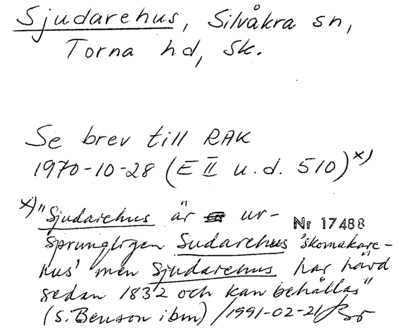 Sjudarehus, Silvåkra sn,
Torna hd, Sk.
Se brev till RAK
1970-10-28 (E II u.d. 510) x)
x) "Sjudarehus är ur-
Nr 17488
sprungligen Sudarehus 'skomakare-
hus' men Sjudarehus har hävd
sedan 1832 och kan behållas"
(S. Benson ibm) /1991-02-21/